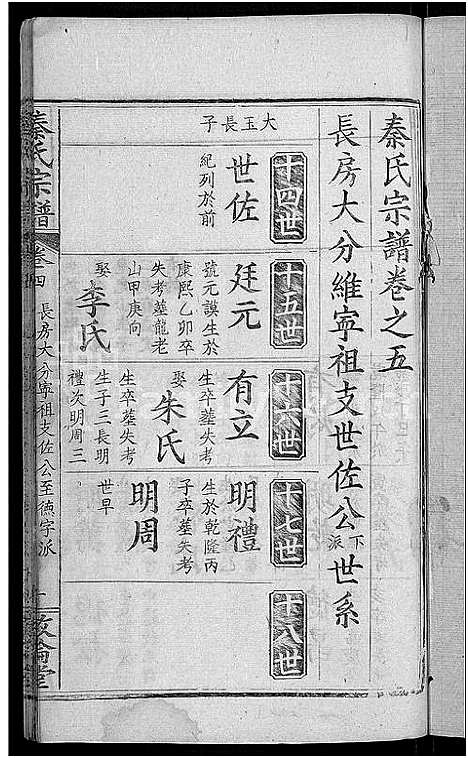 秦氏宗譜卷之五
長房大分維寧祖支世佐公下派世系
十四世
十五世
十六世
十七世
十八世
大玉長子
世佐
紀列於前
廷元
號元謨生於
康熙乙卯卒
失考塟龍老
山甲庚向
娶
李氏
有立
生卒塟失考
娶
朱氏
生卒塟失考
生子三長明
禮次明周三
明禮
生於乾隆丙
子卒塟失考
明周
世早
秦氏宗譜
卷之四
長房大分寧祖支佐公至德字派
敦倫堂